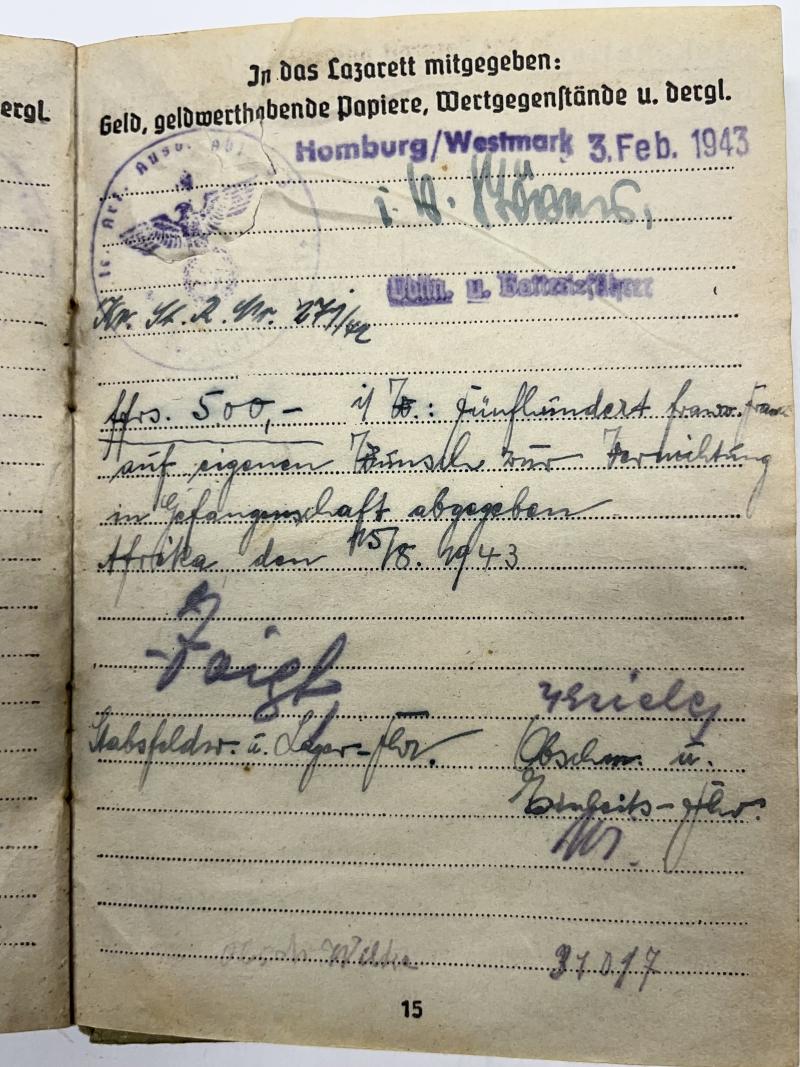 ergl.
In das Lazarett mitgegeben:
Geld, geldwerthabende Papiere, Wertgegenstände u. dergl.
Homburg/Westmark 3. Feb. 1943
Art. Ausb. Abt.
Oblin. u. Batterieführer
Kr. St. R. Nr. 271/42
ffrs. 500,- i/W.: Fünfhundert franz. Franc
auf eigenen Wunsch zur Vernichtung
in Gefangenschaft abgegeben
Afrika, den 15/8. 1943
Voigt
Stabsfeldw. u. Lager-Fhr.
Obschm. u.
Einheits-Fhr.
Wilke 31017
15